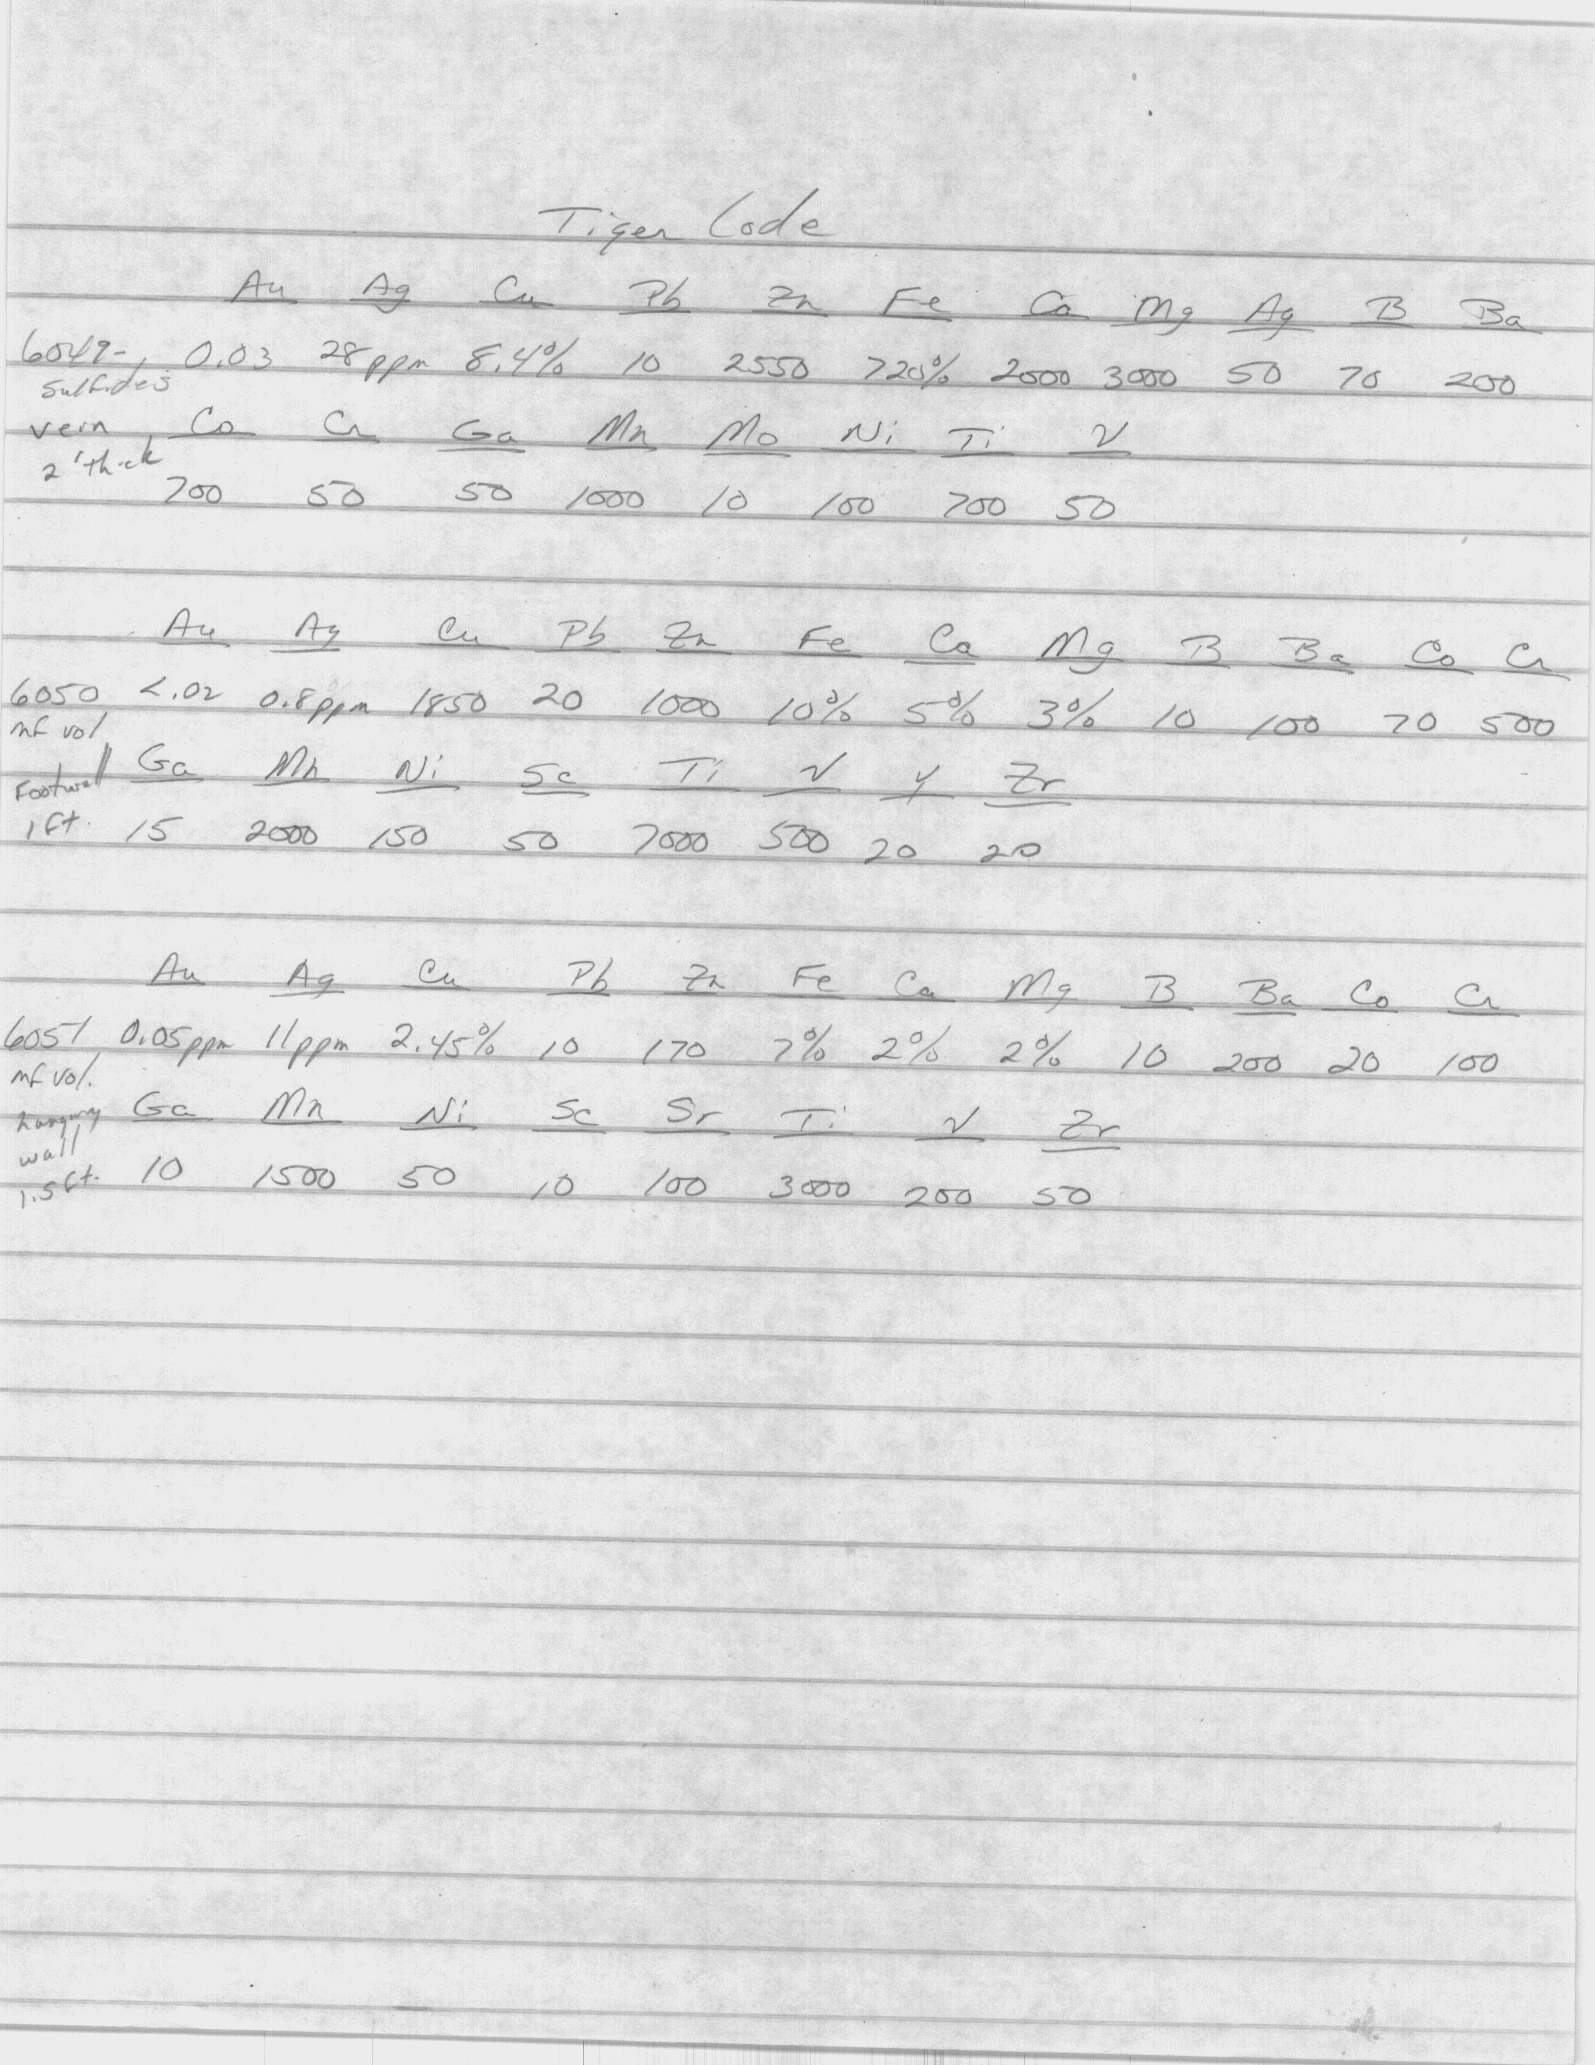 Tiger Lode
Au Ag Cu Pb Zn Fe Ca Mg Ag B Ba
6049- 0.03 28ppm 8.4% 10 2550 >20% 2000 3000 50 70 200
sulfides
vein, Co Cr Ga Mn Mo Ni Ti V
2' thick
700 50 50 1000 10 100 700 50
Au Ag Cu Pb Zn Fe Ca Mg B Ba Co Cr
6050 <.02 0.8ppm 1850 20 1000 10% 5% 3% 10 100 70 500
mf vol
Ga Mn Ni Sc Ti V Y Zr
Footwall
1 ft. 15 2000 150 50 7000 500 20 20
Au Ag Cu Pb Zn Fe Ca Mg B Ba Co Cr
6051 0.05ppm 11ppm 2.45% 10 170 7% 2% 2% 10 200 20 100
mf vol.
hanging Ga Mn Ni Sc Sr Ti V Zr
wall
1.5 ft. 10 1500 50 10 100 3000 200 50